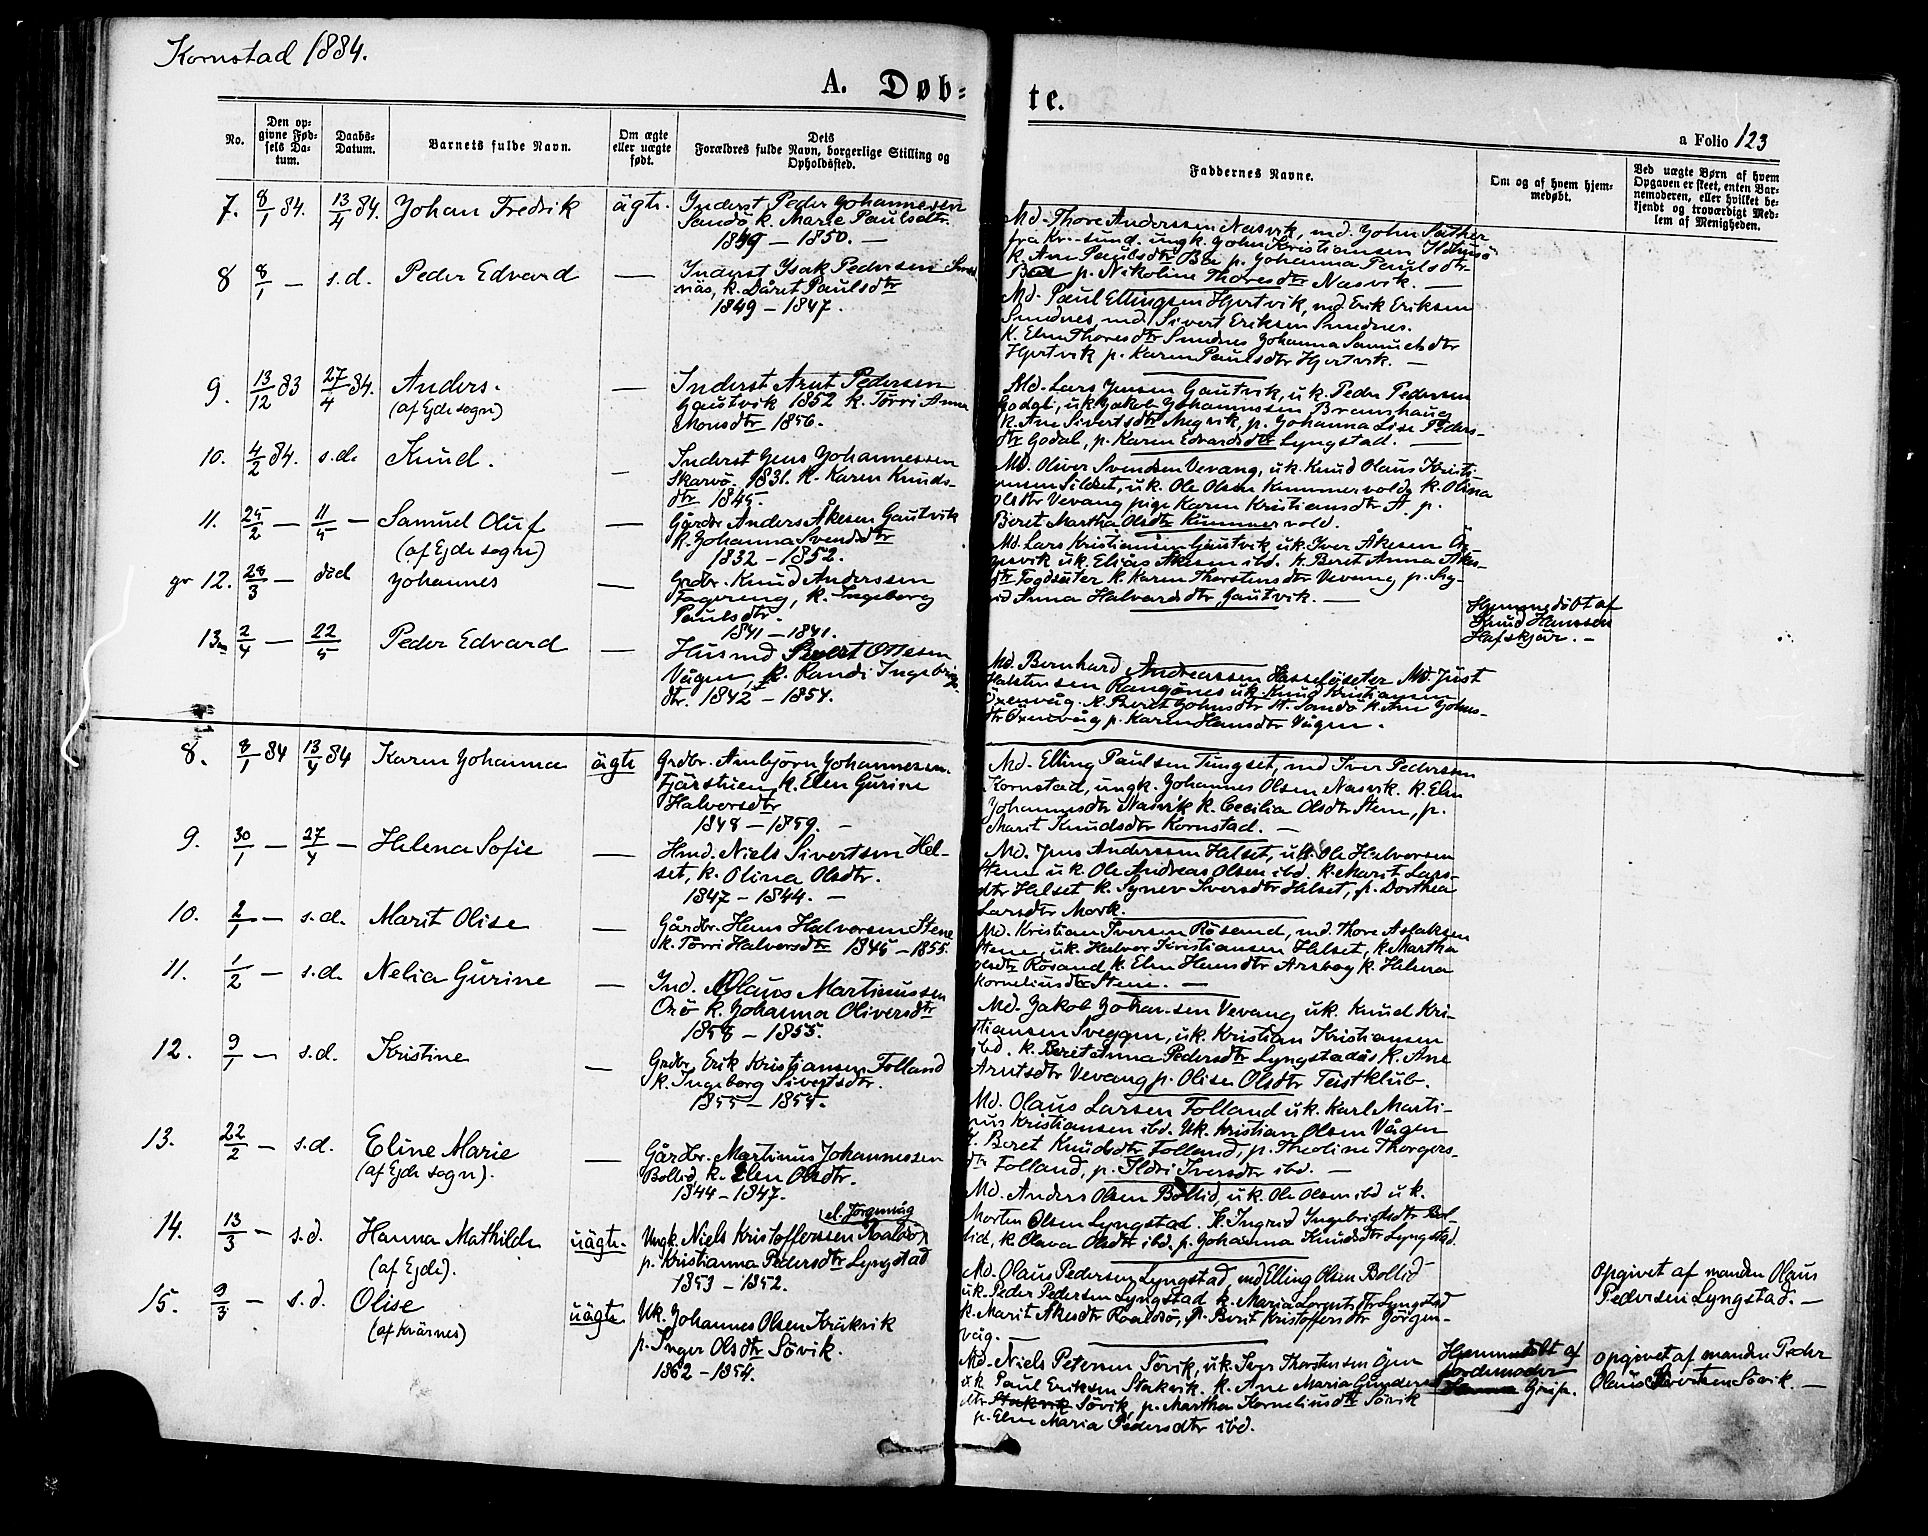 Kornstad 1884.
A. Døb-
te.
a Folio 123
No.
Den op-
givne Fød-
sels Da-
tum.
Daabs-
Datum.
Barnets fulde Navn.
Om ægte
eller uægte
født.
Dets
Forældres fulde Navn, borgerlige Stilling og
Opholdssted.
Faddernes Navne.
Om og af hvem hjem-
medøbt.
Ved uægte Børn af hvem
Opgaven er skeet, enten Bar-
nemoderen, eller hvilket be-
kjendt og troværdigt Med-
lem af Menigheden.
7. 8/1 84. 13/4 84. Johan Fredrik ägte. Inderst Peder Johannesen
Sandö k. Marie Paulsdtr.
1849 – 1850. –
Md. Thore Anderssen Nasvik, md. John Säther
fra Kr.-sund. ungk. John Kristiansen
k. Ane Paulsdtr Böe p. Johanna Paulsdtr
p. Nikoline Thoresdtr Nasvik. –
8 8/1 – s.d. Peder Edvard — Inderst Isak Pedersen
näs, k. Dåret Paulsdtr
1849 – 1847.
Md. Paul Ellingsen Hjertvik, md Erik Eriksen
Sundnes, md. Sivert Eriksen Sundnes.
k. Elen Thoresdtr Sundnes Johanna Samuelsdtr
Hjertvik p. Karen Paulsdtr Hjertvik. –
9. 13/12 83 27/4 84. Anders. — Inderst Arnt Pedersen
(af Ejde sogn)
Gautvik 1852 k. Törri Anna
Monsdtr 1856.
Md. Lars Jensen Gautvik, uk. Peder Pedersen
Godal, uk. Jakob Johannessen
k. Ane Sivertsdtr Megvik, p. Johanna Lise Peders-
dtr Godal, p. Karen Edvardsdtr Lyngstad. –
10. 4/2 84. s.d. Knud. — Inderst Jens Johannessen
Skarvö. 1831. k. Karen Knuds-
dtr 1845.
Md. Oliver Svendsen Vevang, uk. Knud Olaus Kristi-
ansen Sildset, uk. Ole Olsen Kummervold, k. Olina
Olsdtr Vevang pige Karen Kristiansdtr A. p.
Beret Martha Olsdtr Kummervold.
11. 25/2 – 11/5 – Samuel Oluf — Gårdbr Anders Åkesen Gautvik
(af Ejde sogn)
k. Johanna Svendsdtr
1832 – 1852.
Md. Lars Kristiansen Gautvik, uk. Iver Åkesen
uk. Elias Åkesen ibd. k. Beret Anna Åkes-
dtr Fogdsäter k. Karen Thorstensdtr Vevang p.
Anna Halvardsdtr Gautvik. –
12. 28/3 – död Johannes — Grdbr. Knud Anderssen
Fagereng, k. Ingeborg
Paulsdtr.
1841 – 1841.
Hjemmedöbt af
Knud Hanssen
Hafskjär. –
13 2/4 – 22/5 Peder Edvard — Husmd Sivert Ottesen
Vågen, k. Randi Ingebrigts-
dtr. 1842 – 1854.
Md. Bernhard Andreassen Hasselöseter Md. Just
Halstensen uk. Knud Kristiansen
Öxenvåg. k. Berit Johnsdtr St. Sandö k. Ane Johns-
dtr Öxenvåg p. Karen Hansdtr Vågen.
8. 8/1 84 13/4 84 Karen Johanna ägte Grdbr. Arnbjörn Johannessen.
k. Elen Gurine
Halvorsdtr
1848 – 1859. –
Md. Elling Paulsen Tungset, md Iver Pedersen
Kornstad, ungk. Johannes Olsen Nasvik. k. Elen
Johannesdtr Nasvik k. Cecilia Olsdtr Stene, p.
Marit Knudsdtr Kornstad. –
9. 30/1 – 27/4 – Helena Sofie — Hmd. Niels Sivertsen Hel-
set, k. Olina Olsdtr.
1847 – 1844. –
Md. Jens Anderssen Helset, uk. Ole Halvorsen
Stene uk. Ole Andreas Olsen ibd. k. Marit Lars-
dtr Helset k. Synev Iversdtr Helset, p. Dorthea
Larsdtr Mork.
10. 2/1 – s.d. Marit Olise — Gårdbr. Hans Halvorsen Stene
k. Törri Halvorsdtr 1845 – 1855.
Md. Kristian Iversen Rösand, md. Thore Aslaksen
Stene, uk. Halvor Kristiansen Helset, k. Martha
Olsdtr Rösand k. Elen Hansdtr k. Helena
Korneliusdtr Stene. –
11. 1/2 – s.d. Nelia Gurine — Ind. Olaus Martinussen
k. Johanna Oliversdtr
1858 – 1855.
Md. Jakob Johansen Vevang uk. Knud Kri-
stiansen Sveggen, uk. Kristian Kristiansen
ibd. k. Berit Anna Pedersdtr Lyngstadås k. Ane
Arntsdtr Vevang p. Olise Olsdtr Teistklub.
12. 9/1 – s.d. Kristine — Grdbr. Erik Kristiansen Folland
k. Ingeborg Sivertsdtr.
1855 – 1854.
Md. Olaus Larsen Folland uk. Karl Marti-
nus Kristiansen ibd. Uk. Kristian Olsen Vågen
k. Beret Knudsdtr Folland, p. Theoline Thorgers-
dtr Folland, p. Ildri Iversdtr ibd. –
13. 22/2 – s.d. Eline Marie — Gårdbr. Martinus Johannessen
(af Ejde sogn).
Bollid, k. Elen Olsdtr.
1844 – 1847.
Md. Anders Olsen Bollid, uk. Ole Olsen ibd uk.
Morten Olsen Lyngstad. k. Ingrid Ingebrigtsdtr Bol-
lid, k. Olava Olsdtr ibd. p. Johanna Knudsdtr Lyngstad.
14. 13/3 – s.d. Hanna Mathilde uägte. Ungk. Niels Kristofferssen Roaldsö
(el. Jörgenvåg
(af Ejde).
p. Kristianna Pedersdtr Lyngstad
1853 – 1852.
Md. Olaus Pedersen Lyngstad, md Elling Olsen Bollid
uk. Peder Pedersen Lyngstad k. Maria Lorentsdtr Lyngstad
k. Marit Åkesdtr Roaldsö, p. Berit Kristoffersdtr Jörgen-
våg. –
opgivet af manden Olaus
Pedersen Lyngstad. –
15. 9/3 – s.d. Olise uägte Uk. Johannes Olsen Kråkvik
(af Kvärnes)
p. Inger Olsdtr Sövik.
1862 – 1854.
Md. Niels Petersen Sövik, uk. Iver Thorstensen Ögen
uk Paul Eriksen Stakvik. k. Ane Maria Gunders-
dtr Stakvik Sövik, p. Martha Korneliusdtr Sövik
p. Elen Maria Pedersdtr ibd.
Hjemmedöbt af
Jordemoder
Hanna Grip.
opgivet af manden Peder
Olaus Sivertsen Sövik. –